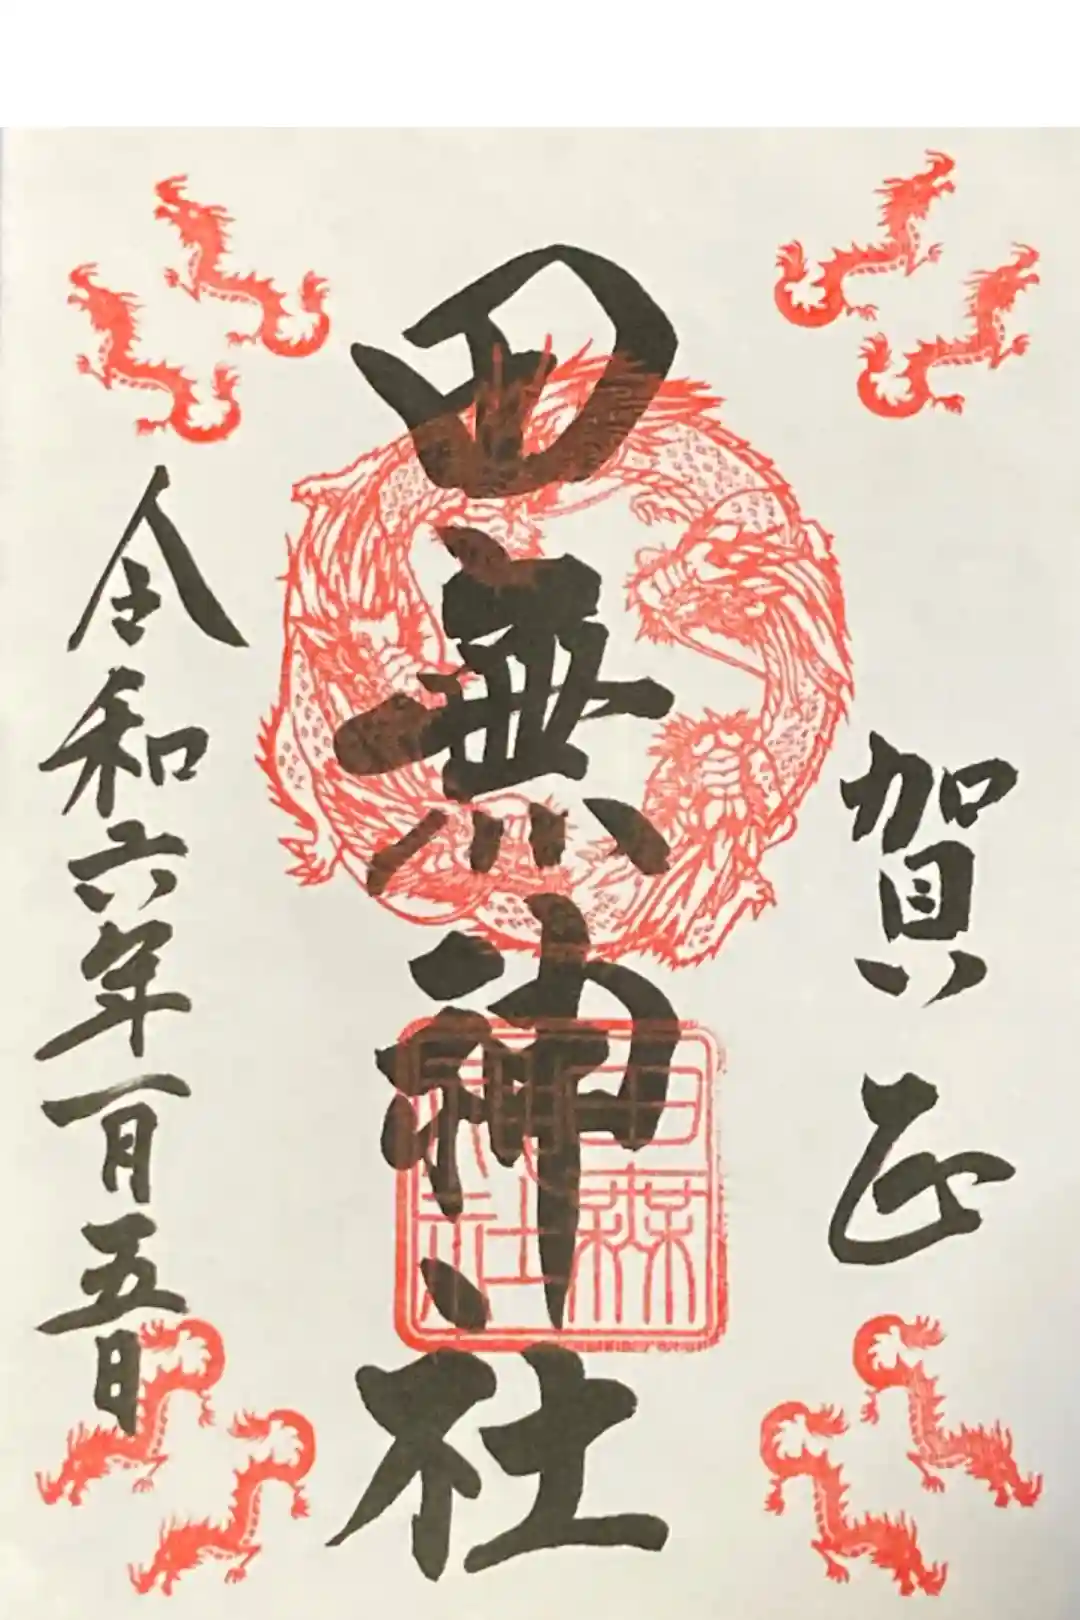 賀正
田無神社
田無神社
令和六年一月五日